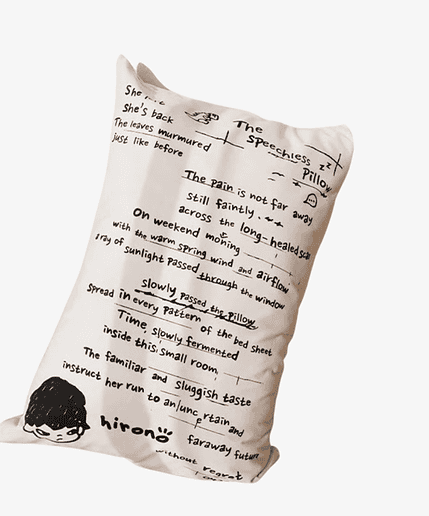 She
She's back
The leaves murmured
just like before
The
Speechless
Pillow
zz
The pain is not far away
still faintly
across the long-healed scar
On weekend moning
with the warm spring wind and airflow
a ray of sunlight passed through the window
slowly passed the Pillow
Spread in every pattern of the bed sheet
Time slowly fermented
inside this small room
The familiar and sluggish taste
instruct her run to an uncertain and
faraway future
without regret
hirono